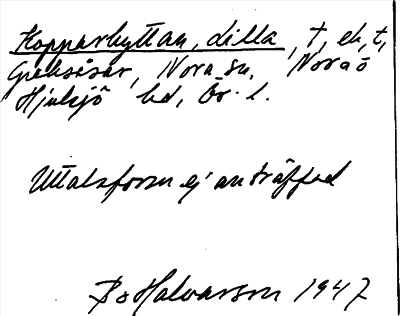 Kopparhyttan, lilla, t, ek, t,
Nora sn. Nora ö
Hjulsjö bd, Ör. l.
Uttalsform ej anträffad
Bo Halvarson 1947